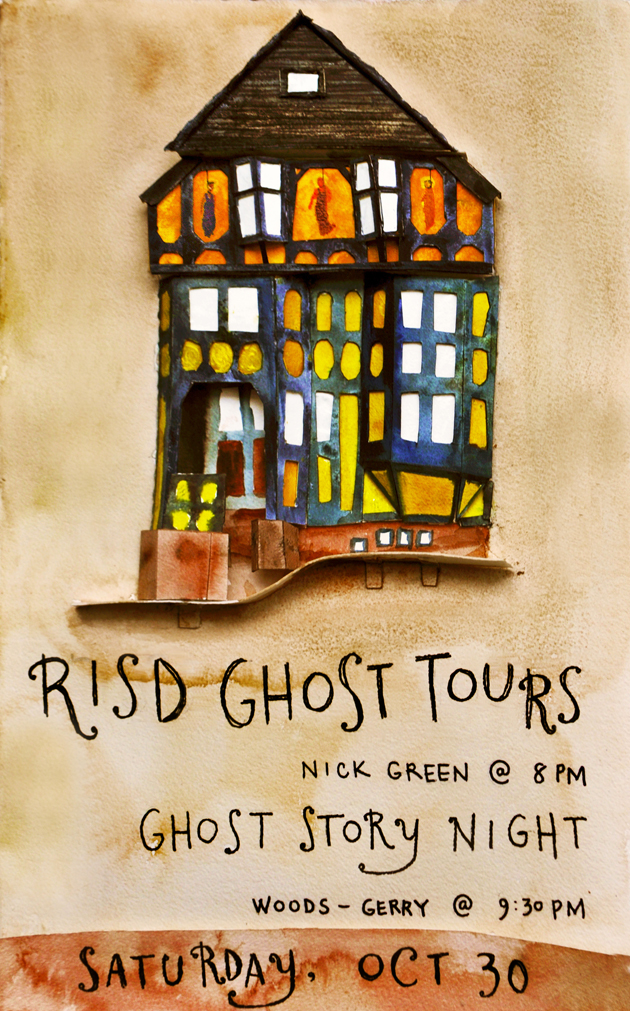 RISD GHOST TOURS
NICK GREEN @ 8 PM
GHOST STORY NIGHT
WOODS-GERRY @ 9:30 PM
SATURDAY, OCT 30